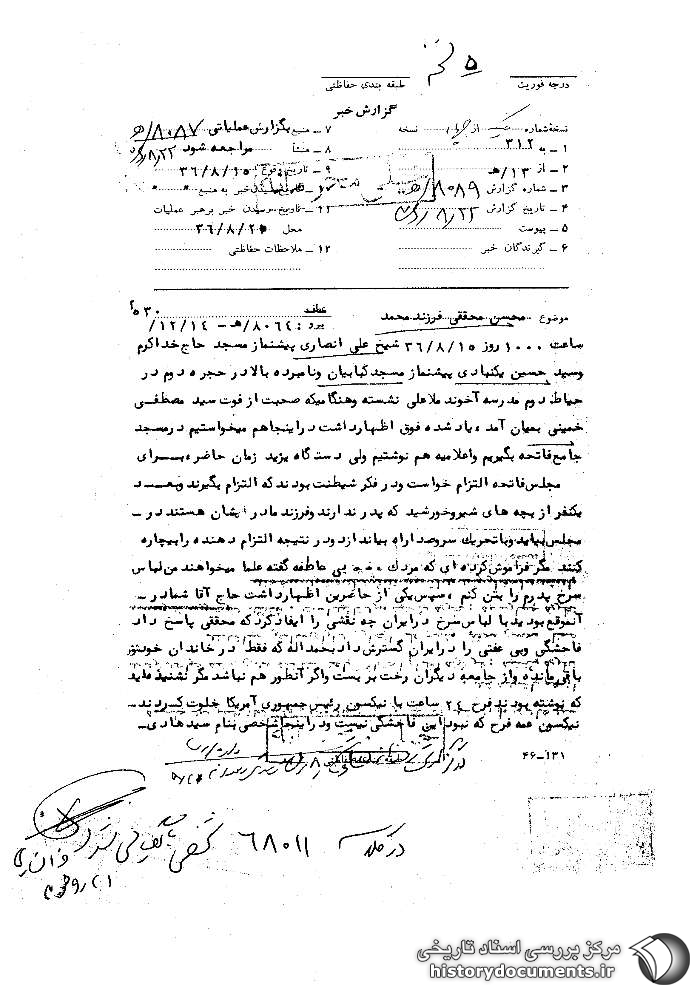 ۵
درجه فوریت
طبقه بندی حفاظتی
گزارش خبر
نسخه شماره یک از نسخه
۱ - به ۳۱۲
۲ - از ۱۳/هـ
۳ - شماره گزارش ۸۰۸۹/هـ
۴ - تاریخ گزارش ۸/۲۲
۵ - پیوست
۶ - گیرندگان خبر
۷ - منبع بگزارش عملیاتی ۸۰۸۷/هـ
۸ - منشأ مراجعه شود ۸/۲۲
۹ - تاریخ وقوع ۳۶/۸/۱۵
۱۰ - تاریخ رسیدن خبر به منبع " "
۱۱ - تاریخ رسیدن خبر برهبر عملیات
محل ۳۶/۸/۲۰
۱۲ - ملاحظات حفاظتی
موضوع محسن محققی فرزند محمد
عطف
پیرو : ۸۰۶۴/هـ - ۱۲/۱۴/
۵۳۰
ساعت ۱۰۰۰ روز ۳۶/۸/۱۵ شیخ علی انصاری پیشنماز مسجد حاج خداکرم
وسید حسین یکتبادی پیشنماز مسجد کبابیان ونامبرده بالا در حجره دوم در
حیاط دوم مدرسه آخوند ملاعلی نشسته وهنگامیکه صحبت از فوت سید مصطفی
خمینی بمیان آمد ، یاد شده فوق اظهارداشت دراینجاهم میخواستیم درمسجد
جامع فاتحه بگیریم واعلامیه هم نوشتیم ولی دستگاه یزید زمان حاضره برای
مجلس فاتحه التزام خواست ودر فکر شیطنت بودند که التزام بگیرند وبعد
یکنفر از بچه های شیروخورشید که پدر ندارند وفرزند مادر ایشان هستند در -
مجلس بیاید وباتحریک سروصدا راه بیاندازد ودر نتیجه التزام دهنده رابیچاره
کنند مگر فراموش کرده ای که مردک بی عاطفه گفته علما میخواهند من لباس
سرخ پدرم را بتن کنم ، سپس یکی از حاضرین اظهارداشت حاج آقا شمادر -
آنموقع بودید با لباس سرخ در ایران چه نقشی را ایفاد کرد که محققی پاسخ داد
فاحشگی وبی عفتی را در ایران گسترش داد بحمداله که فقط در خاندان خودشون
باقیمانده واز جامعه دیگران رخت بر بست واگر آنطور هم نباشد مگر نشنیده اید
که نوشته بودند فرح ۲۴ ساعت با نیکسون رئیس جمهوری آمریکا خلوت کردند -
نیکسون عمه فرح که نبود این فاحشگی نیست ودر اینجا شخصی بنام سید هادی -
۴۶-۱۳۱
۶۸۰۱۱
مرکز بررسی اسناد تاریخی
historydocuments.ir